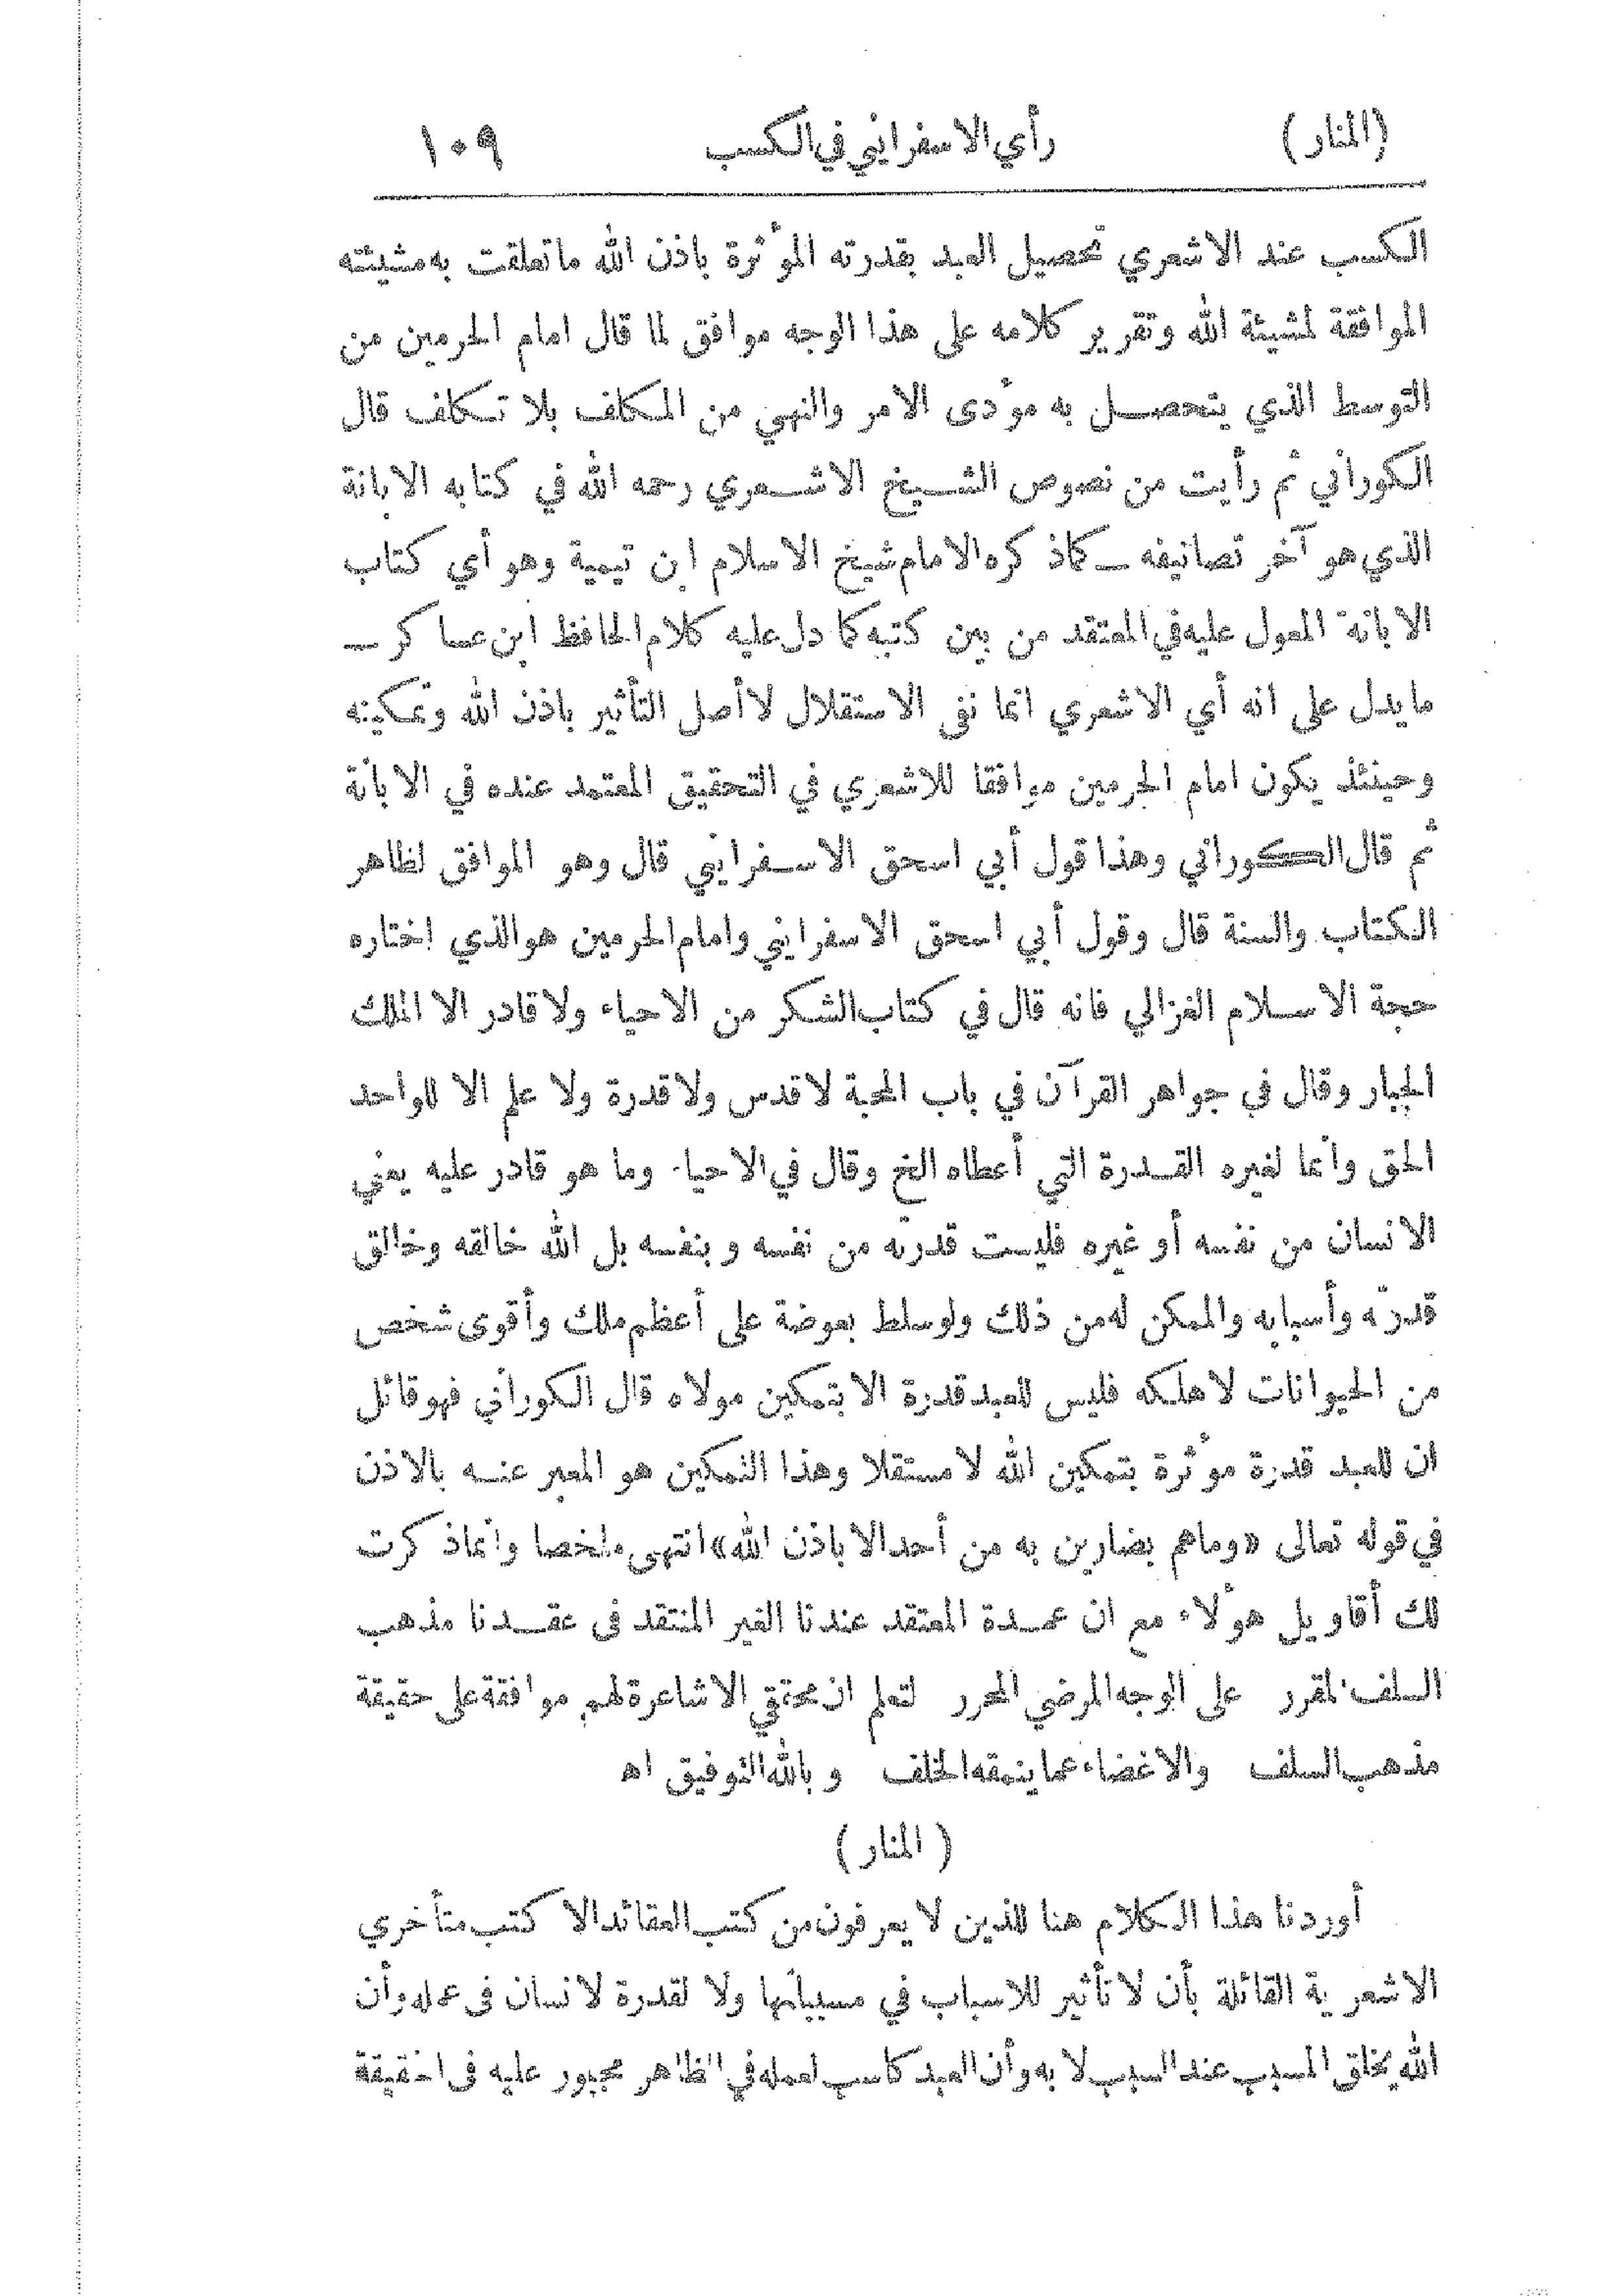 (المنار) رأي الاسفرايني في الكسب ١٠٩
الكسب عند الاشعري تحصيل العبد بقدرته المؤثرة باذن الله ما تعلقت به مشيئته
الموافقة لمشيئة الله وتقرير كلامه على هذا الوجه موافق لما قال امام الحرمين من
التوسط الذي يتحصل به مؤدى الامر والنهي من المكلف بلا تكلف قال
الكوراني ثم رأيت من نصوص الشيخ الاشعري رحمه الله في كتابه الابانة
الذي هو آخر تصانيفه ــ كما ذكره الامام شيخ الاسلام ابن تيمية وهو أي كتاب
الابانة المعول عليه في المعتقد من بين كتبه كما دل عليه كلام الحافظ ابن عساكر ــ
ما يدل على انه أي الاشعري انما نفى الاستقلال لا أصل التأثير باذن الله وتمكينه
وحينئذ يكون امام الحرمين موافقا للاشعري في التحقيق المعتمد عنده في الابانة
ثم قال الكوراني وهذا قول أبي اسحق الاسفرايني قال وهو الموافق لظاهر
الكتاب والسنة قال وقول أبي اسحق الاسفرايني وامام الحرمين هو الذي اختاره
حجة الاسلام الغزالي فانه قال في كتاب الشكر من الاحياء ولا قادر الا الملك
الجبار وقال في جواهر القرآن في باب المحبة لا قدس ولا قدرة ولا علم الا للواحد
الحق وانما لغيره القدرة التي أعطاه الخ وقال في الاحياء وما هو قادر عليه يعني
الانسان من نفسه أو غيره فليست قدرته من نفسه وبنفسه بل الله خالقه وخالق
قدرته وأسبابه والممكن له من ذلك ولو سلط بعوضة على أعظم ملك وأقوى شخص
من الحيوانات لاهلكه فليس للعبد قدرة الا بتمكين مولاه قال الكوراني فهو قائل
ان للعبد قدرة مؤثرة بتمكين الله لا مستقلا وهذا التمكين هو المعبر عنه بالاذن
في قوله تعالى «وما هم بضارين به من أحد الا باذن الله» انتهى ملخصا وانما ذكرت
لك أقاويل هؤلاء مع ان عمدة المعتقد عندنا الغير المنتقد في عقدنا مذهب
السلف المقرر على الوجه المرضي المحرر لتعلم ان محققي الاشاعرة لهم موافقة على حقيقة
مذهب السلف والاغضاء عما ينمقه الخلف وبالله التوفيق اه
(المنار)
أوردنا هذا الكلام هنا للذين لا يعرفون من كتب العقائد الا كتب متأخري
الاشعرية القائلة بأن لا تأثير للاسباب في مسبباتها ولا لقدرة لانسان في عمله وأن
الله يخلق المسبب عند السبب لا به وأن العبد كاسب لعمله في الظاهر مجبور عليه في الحقيقة